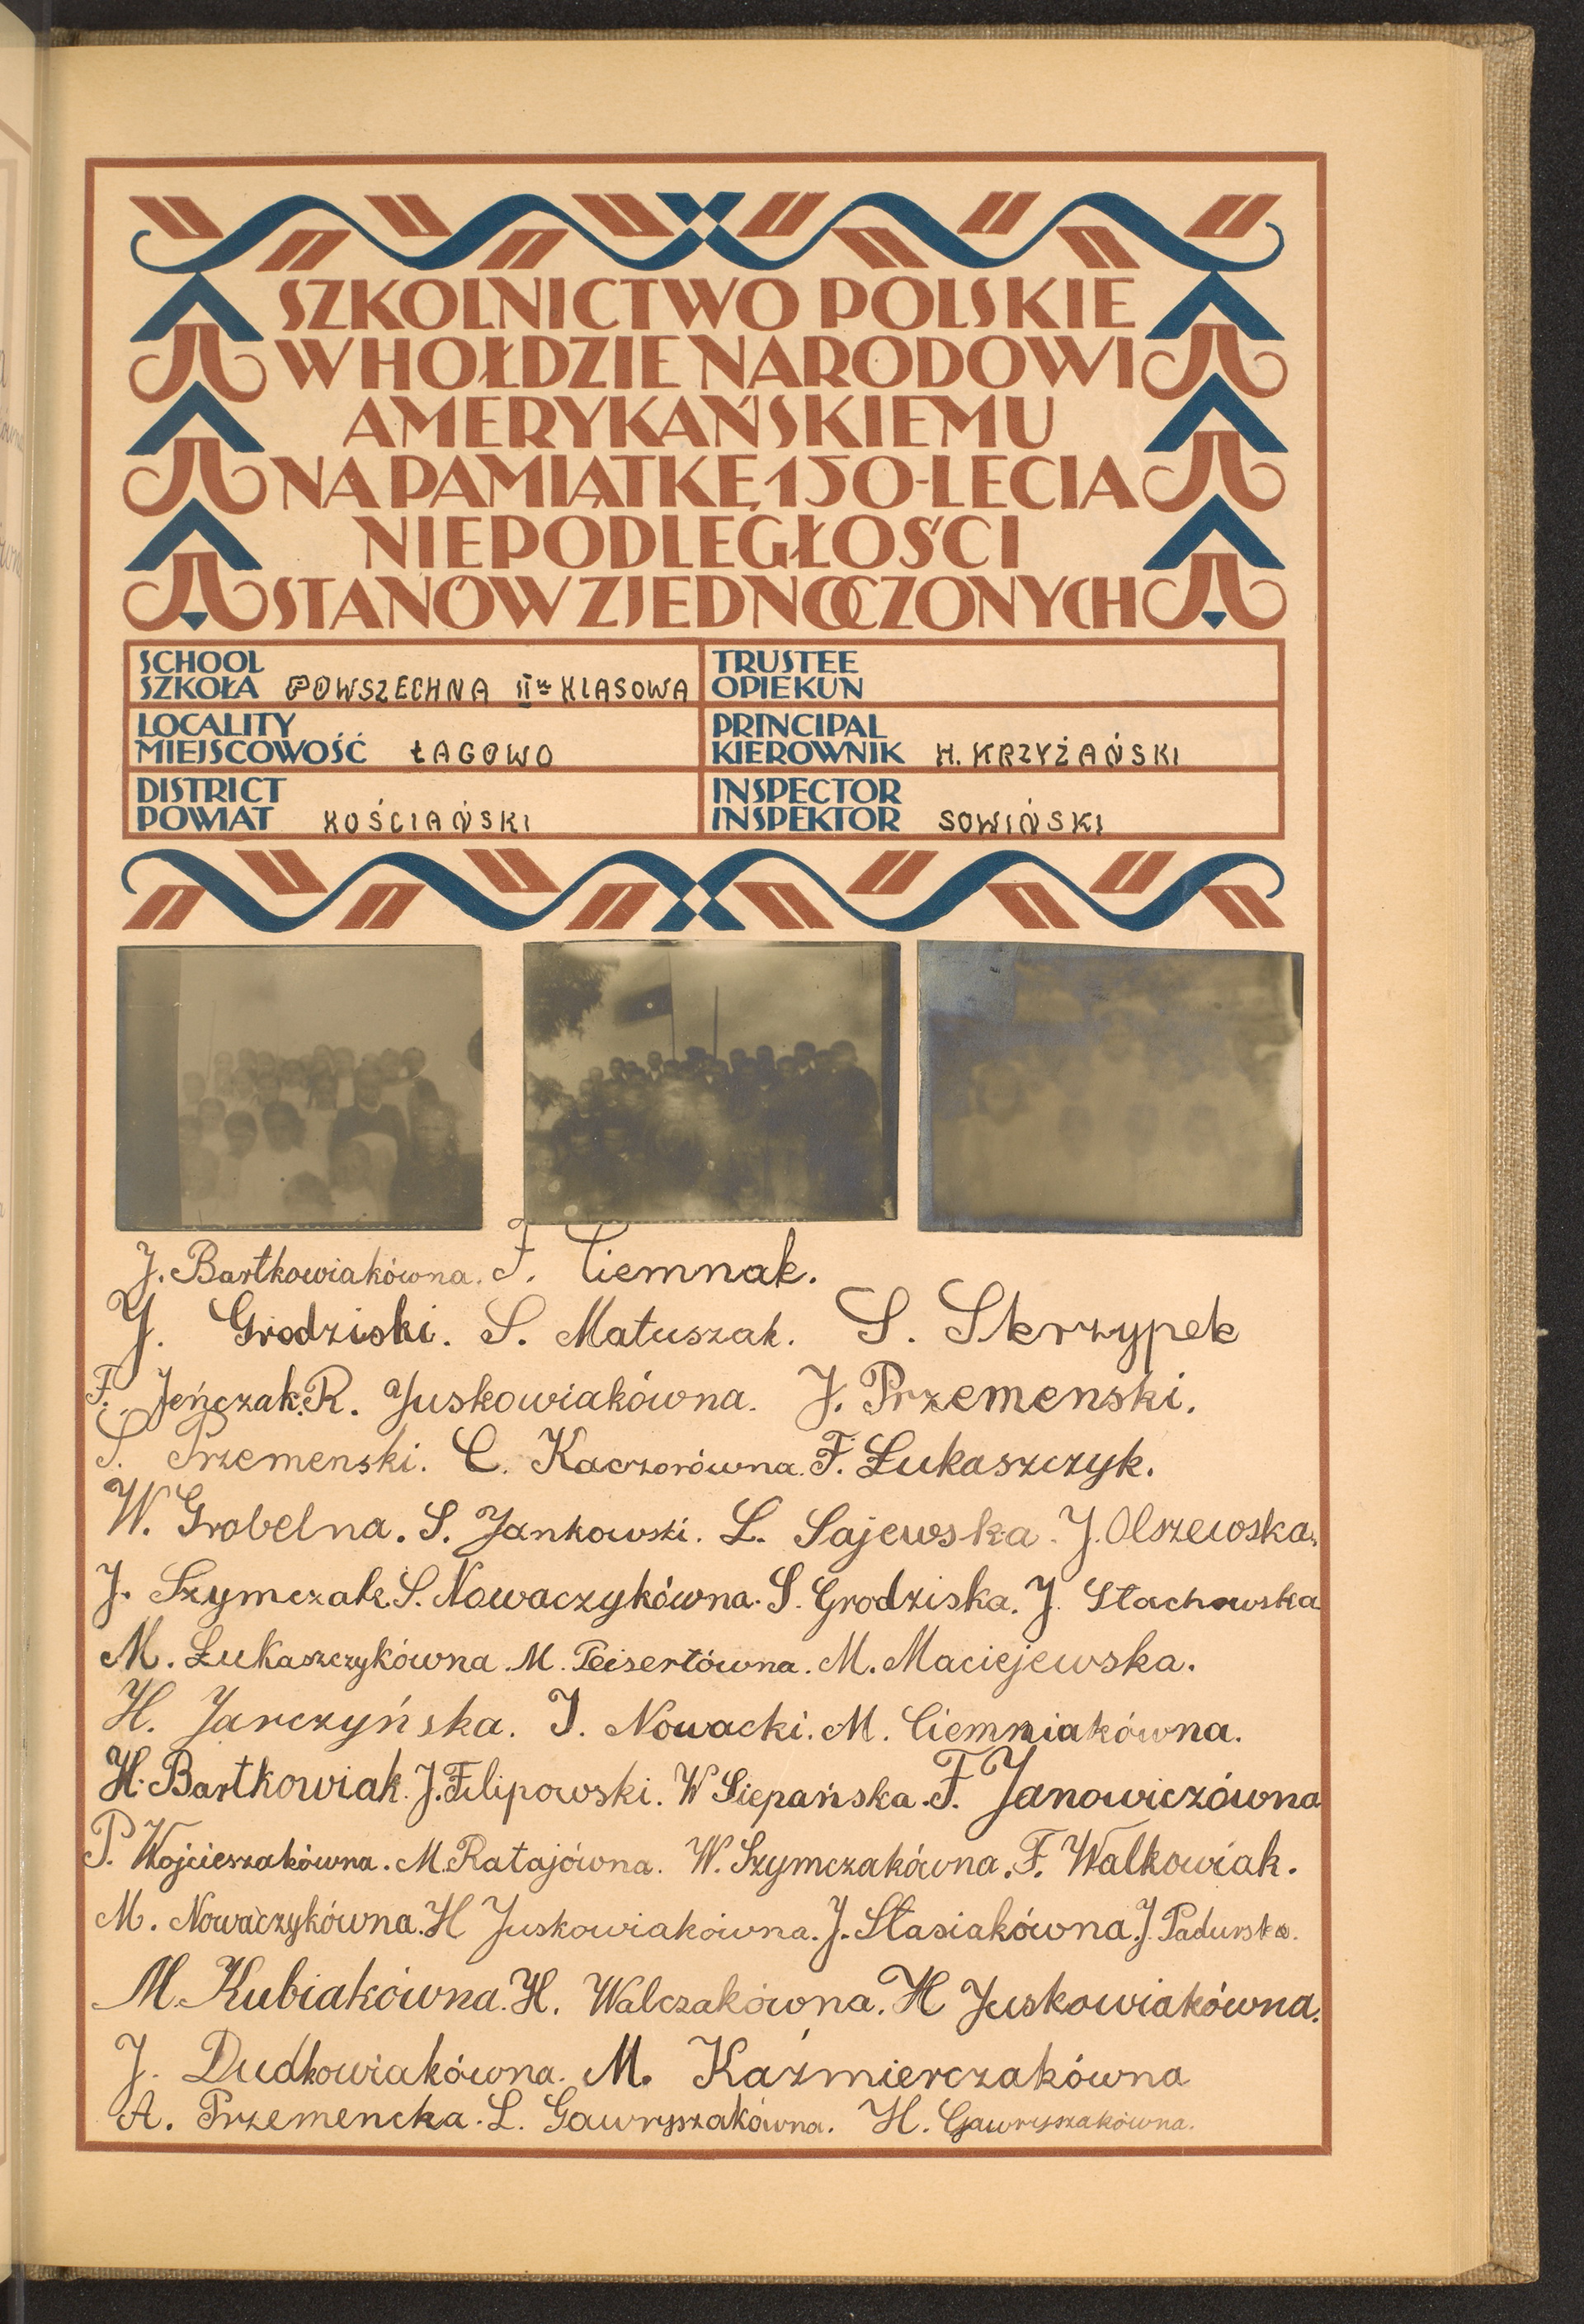 SZKOLNICTWO POLSKIE
W HOŁDZIE NARODOWI
AMERYKAŃSKIEMU
NA PAMIĄTKĘ 150-LECIA
NIEPODLEGŁOŚCI
STANÓW ZJEDNOCZONYCH
SCHOOL
SZKOŁA POWSZECHNA II KLASOWA
TRUSTEE
OPIEKUN
LOCALITY
MIEJSCOWOŚĆ ŁAGOWO
PRINCIPAL
KIEROWNIK H. KRZYŻAŃSKI
DISTRICT
POWIAT KOŚCIAŃSKI
INSPECTOR
INSPEKTOR SOWIŃSKI
J. Bartkowiakówna. F. Ciemnak.
J. Grodziski. S. Matuszak. S. Skrzypek
F. Jeńczak. R. Juskowiakówna. J. Przemenski.
S. Przemenski. C. Kaczorówna. F. Łukaszczyk.
W. Grobelna. S. Jankowski. L. Sajewska. J. Olszewska.
J. Szymczak. S. Nowaczykówna. S. Grodziska. J. Stachowska
M. Łukaszczykówna. M. Peisertówna. M. Maciejewska.
H. Jarczyńska. J. Nowacki. M. Ciemniakówna.
H. Bartkowiak. J. Filipowski. W Siepańska. F. Janowiczówna
P. Wojcieszakówna. M. Ratajówna. W. Szymczakówna. F. Walkowiak.
M. Nowaczykówna. H Juskowiakówna. J. Stasiakówna. J. Padurska.
M. Kubiakówna. H. Walczakówna. H Juskowiakówna.
J. Dudkowiakówna. M. Kaźmierczakówna
A. Przemencka. L. Gawryszakówna. H. Gawryszakówna.